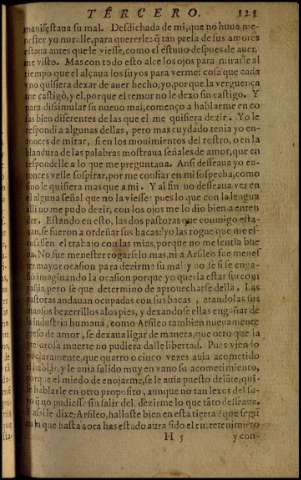 TERCERO. 121
manifestaua su mal. Desdichada de mi, que no huuo me-
nester yo notalle, para quererle si tan presa de sus amores
estaua antes que le viesse, como el estuuo despues de auer
me visto. Mas con todo esto alce los ojos para mirasse al
tiempo que el alçaua los suyos para verme: cosa que cada
vno quisiera dexar de auer hecho, yo, porque la verguença
me castigo, y el, porque el temor no le dexo sin castigo. Y
para dissimular su nueuo mal, començo a hablarme en co
sas bien diferentes de las que el me quisiera dezir. Yo le
respondi a algunas dellas, pero mas cuydado tenia yo en-
tonces de mirar, si en los mouimientos del rostro, o en la
blandura de las palabras mostraua señales de amor, que en
respondelle a lo que me preguntaua. Ansi desseaua yo en-
tonces velle sospirar, por me confiar en mi sospecha, como
sino le quisiera mas que a mi. Y al fin no desseaua ver en
el alguna señal que no la viesse: pues lo que con la lengua
alli no me pudo dezir, con los ojos me lo dio bien a enten
der. Estando en esto, las dos pastoras que comigo esta-
uan, se fueron a ordeñar sus bacas: yo las rogue que me es-
cusassen el trabajo con las mias, porque no me sentia bue
na. No fue menester rogarselo mas, ni a Arsileo fue menes
ter mayor ocasion para dezirme su mal: y no se si se enga-
ño imaginando la ocasion porque yo queria estar sin com
pañia, pero se que determino de aprouecharse della. Las
pastoras andauan ocupadas con sus bacas, atandolas sus
mansos bezerrillos a los pies, y dexandose ellas engañar de
la industria humana, como Arsileo tambien nueuamente
preso de amor, se dexaua ligar de manera, que otro que la
presurosa muerte no pudiera dalle libertad. Pues viendo
yo claramente, que quatro o cinco vezes auia acometido
el hablar, y le auia salido muy en vano su acometimiento,
porque el miedo de enojarme, se le auia puesto delante, qui-
se hablarle en otro proposito, aunque no tan lexos del su-
yo que no pudiesse sin salir del dezirme lo que tãto desseaua.
Y assi le dixe: Arsileo, hallaste bien en esta tierra? que segũ
en la que hasta aora has estado aura sido el entretenimiẽto
H 5 y con-